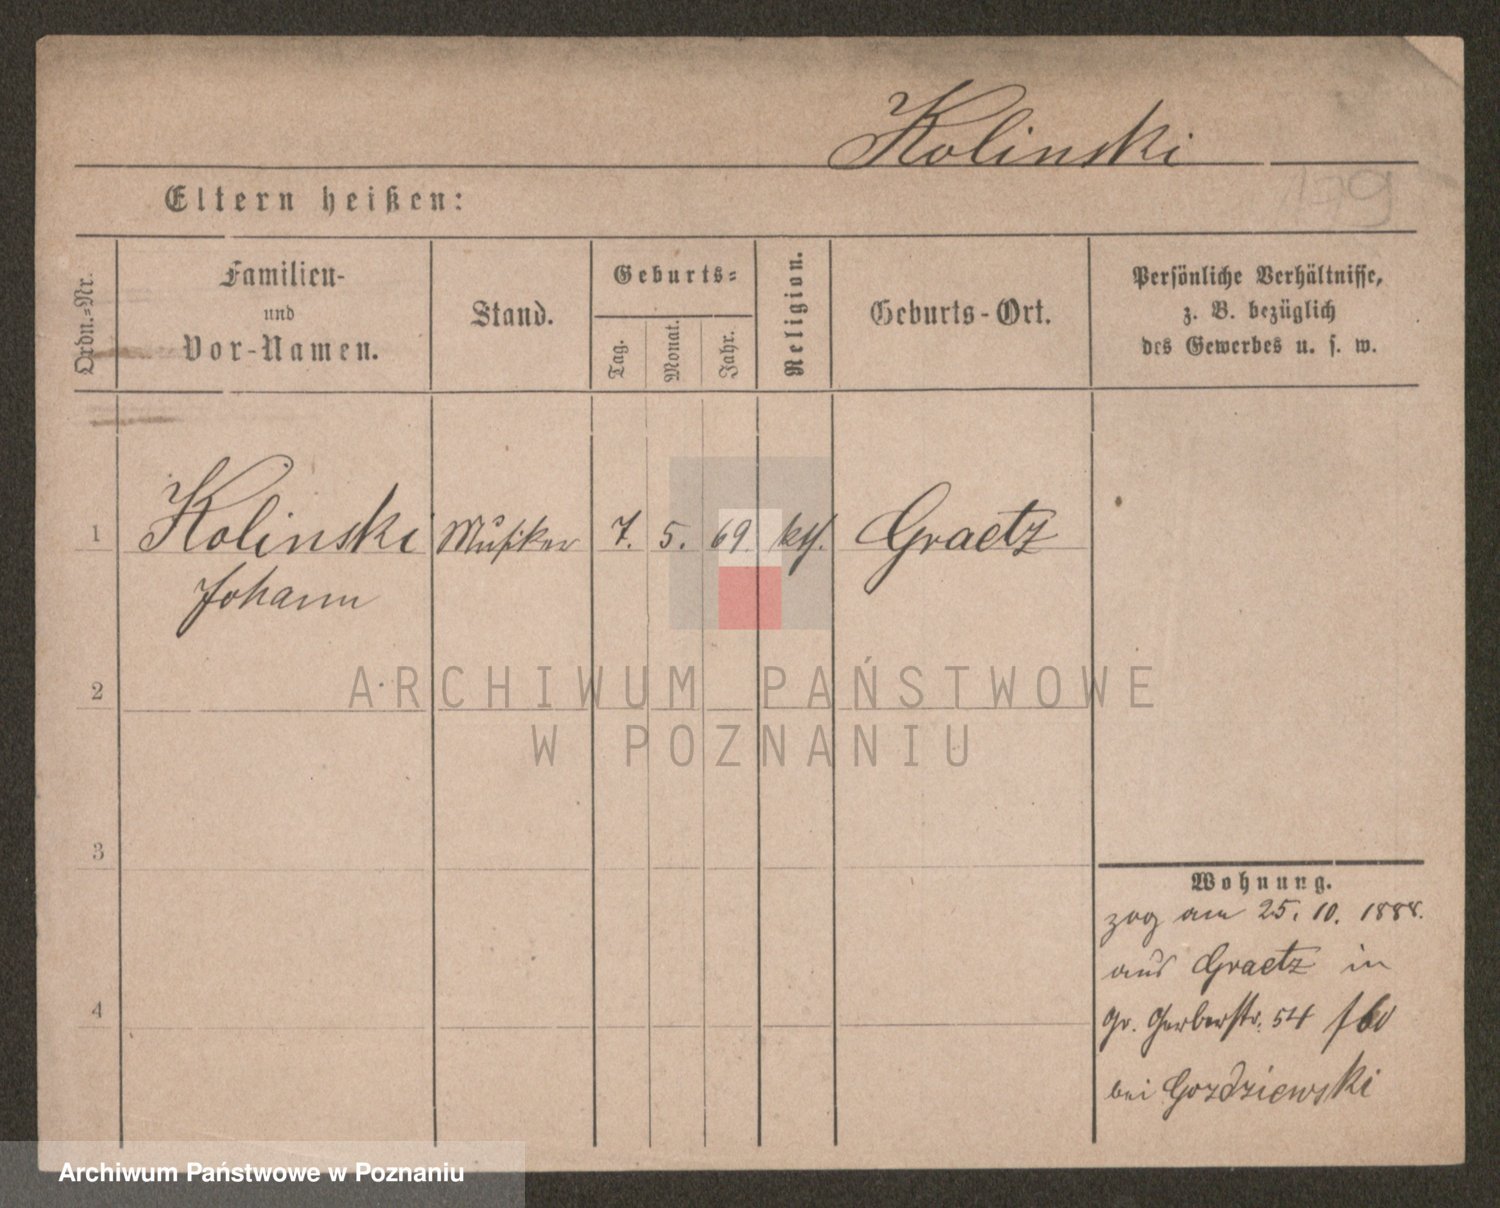 Kolinski
179
Eltern heißen:
Ordn.=Nr.
Familien-
und
Vor-Namen.
Stand.
Geburts=
Tag.
Monat.
Jahr.
Religion.
Geburts-Ort.
Persönliche Verhältnisse,
z. B. bezüglich
des Gewerbes u. s. w.
1 Kolinski Musiker 7. 5. 69. kth. Graetz
Johann
2
ARCHIWUM PAŃSTWOWE
W POZNANIU
3
Wohnung.
zog am 25. 10. 1888.
aus Graetz in
4
Gr. Gerberstr. 54
bei Gozdziewski
Archiwum Państwowe w Poznaniu